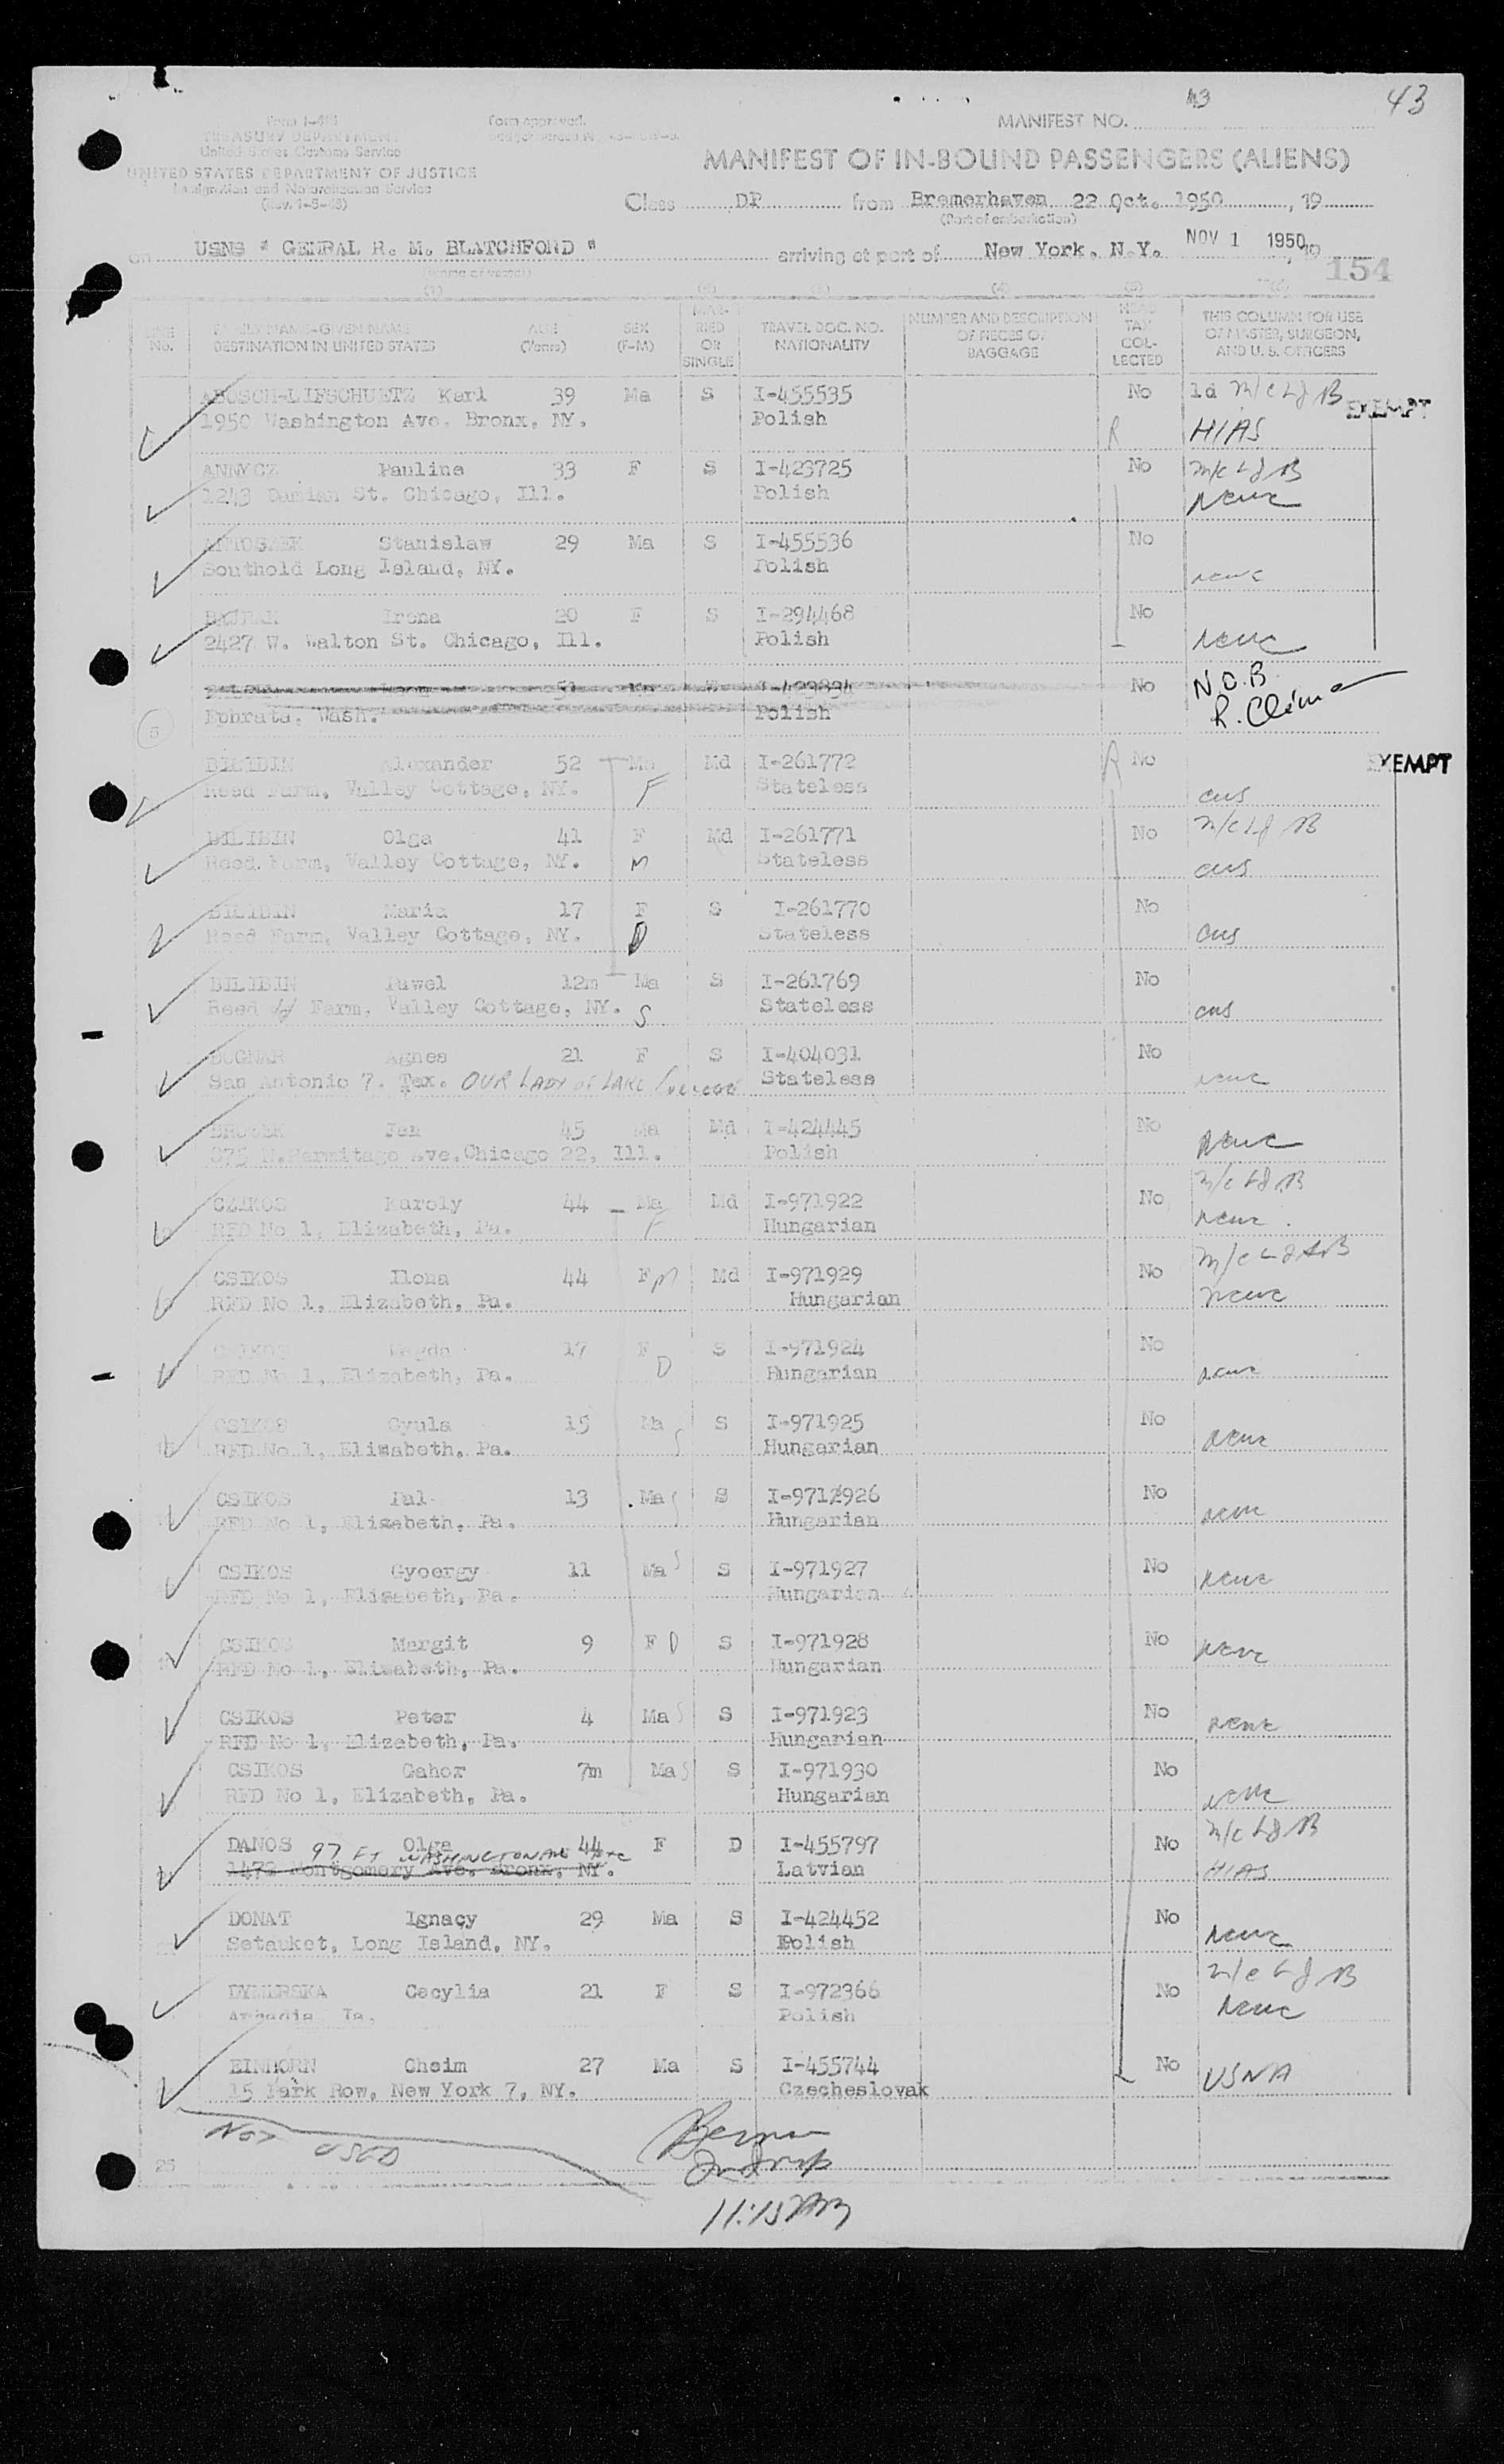 43
MANIFEST NO. 43
Form I-418
TREASURY DEPARTMENT
United States Customs Service
UNITED STATES DEPARTMENT OF JUSTICE
Immigration and Naturalization Service
Form approved.
MANIFEST OF IN-BOUND PASSENGERS (ALIENS)
Class DP from Bremerhaven 22 Oct. 1950, 19
(Port of embarkation)
on USNS " GENRAL R. M. BLATCHFORD " arriving at port of New York, N.Y. NOV 1 1950, 19
(Name of vessel)
154
(1) (2) (3) (4) (5) (6)
LINE No.
FAMILY NAME-GIVEN NAME
DESTINATION IN UNITED STATES
AGE (Years)
SEX (F-M)
MAR-RIED OR SINGLE
TRAVEL DOC. NO. NATIONALITY
NUMBER AND DESCRIPTION OF PIECES OF BAGGAGE
HEAD TAX COL-LECTED
THIS COLUMN FOR USE OF MASTER, SURGEON, AND U. S. OFFICERS
ABOSCH-LIFSCHUETZ Karl 39 Ma S I-455535 No ld m/c Lg B EXEMPT
1950 Washington Ave. Bronx, NY. Polish R HIAS
ANNYCZ Paulina 33 F S I-423725 No m/c Lg B
1243 Damian St. Chicago, Ill. Polish NCWC
ANTOSZEK Stanislaw 29 Ma S I-455536 No
Southold Long Island, NY. Polish NCWC
Irena 20 F S I-294468 No
2427 W. Walton St. Chicago, Ill. Polish NCWC
51 No N.O.B.
5 Ephrata, Wash. Polish R.
BILIBIN Alexander 52 Ma Md I-261772 R No EXEMPT
Reed Farm, Valley Cottage, NY. F Stateless CWS
BILIBIN Olga 41 F Md I-261771 No m/c Lg B
Reed Farm, Valley Cottage, NY. M Stateless CWS
BILIBIN Maria 17 F S I-261770 No
Reed Farm, Valley Cottage, NY. D Stateless CWS
BILIBIN Pawel 12m Ma S I-261769 No
Reed Farm, Valley Cottage, NY. S Stateless CWS
BOGNAR Agnes 21 F S I-404031 No
San Antonio 7. Tex. OUR LADY OF LAKE COLLEGE Stateless NCWC
Jan 45 Ma Md I-424445 No
875 N.Hermitage Ave.Chicago 22, Ill. Polish NCWC
CZIKOS Karoly 44 Ma Md I-971922 No m/c Lg B
RFD No 1, Elizabeth, Pa. F Hungarian NCWC
CSIKOS Ilona 44 F M Md I-971929 No m/c Lg B
RFD No 1, Elizabeth, Pa. Hungarian NCWC
CSIKOS Magda 17 F S I-971924 No
RFD No 1, Elizabeth, Pa. D Hungarian NCWC
CSIKOS Gyula 15 Ma S I-971925 No
RFD No 1, Elizabeth, Pa. S Hungarian NCWC
CSIKOS Pal 13 Ma S S I-9712926 No
RFD No 1, Elizabeth, Pa. Hungarian NCWC
CSIKOS Gyoergy 11 Ma S S I-971927 No
RFD No 1, Elizabeth, Pa. Hungarian NCWC
CSIKOS Margit 9 F D S I-971928 No
RFD No 1, Elizabeth, Pa. Hungarian NCWC
CSIKOS Peter 4 Ma S S I-971923 No
RFD No 1, Elizabeth, Pa. Hungarian NCWC
CSIKOS Gahor 7m Ma S S I-971930 No
RFD No 1, Elizabeth, Pa. Hungarian NCWC
DANOS Olga 44 F D I-455797 No m/c Lg B
97 FT WASHINGTON AVE NYC
1472 Montgomery Ave. Bronx, NY. Latvian HIAS
DONAT Ignacy 29 Ma S I-424452 No
Setauket, Long Island, NY. Polish NCWC
DYMERSKA Cecylia 21 F S I-972366 No m/c Lg B
Arcadia Ia. Polish NCWC
EINHORN Cheim 27 Ma S I-455744 No
15 Park Row, New York 7, NY. Czecheslovak USNA
NOT USED
25
11:15